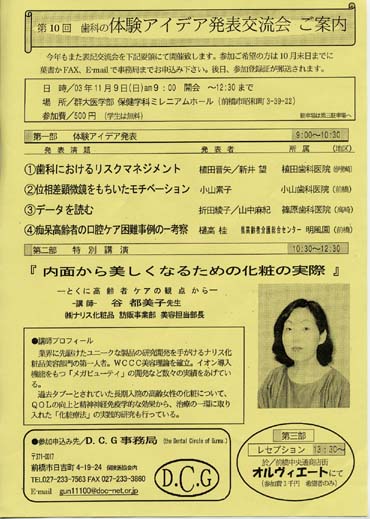 第10回 歯科の体験アイデア発表交流会 ご案内
今年もまた表記交流会を下記要領にて開催致します。参加ご希望の方は10月末日までに
葉書かFAX、E-mailで事務局までお申込み下さい。後日、参加登録証が郵送されます。
日 時／03年11月9日(日)am9：00 開会 〜12:30まで
場 所／群大医学部 保健学科ミレニアムホール (前橋市昭和町3-39-22)
参加費／500円 (学生は無料)
駐車場は第三駐車場へ
第一部 体験アイデア発表 9:00〜10:30
発表演題 発表者 所属 (地区)
①歯科におけるリスクマネジメント 植田晋矢／新井 望 植田歯科医院
②位相差顕微鏡をもちいたモチベーション 小山素子 小山歯科医院(前橋)
③データを読む 折田綾子／山中麻紀 篠原歯科医院(高崎)
④痴呆高齢者の口腔ケア困難事例の一考察 樋高 桂 明風園(前橋)
第二部 特別講演 10:30〜12:30
『 内面から美しくなるための化粧の実際 』
―とくに高齢者ケアの観点から―
-講師- 谷 都美子先生
㈱ナリス化粧品 訪販事業部 美容担当部長
●講師プロフィール
業界に先駆けたユニークな製品の研究開発を手がけるナリス化
粧品美容部門の第一人者。WCCC美容理論を確立。イオン導入
機能をもつ「メガビューティ」の開発など数々の実績をあげてい
る。
過去タブーとされていた長期入院の高齢女性の化粧について、
QOLの向上と精神神経免疫学的な効果から、治療の一環に取り
入れた「化粧療法」の実践的研究も行っている。
●参加申込み先／D. C. G 事務局 (the Dental Circle of Gunma)
〒371-0017
前橋市日吉町4-19-24 保険医協会内
TEL027-233-7563 FAX 027-233-3860
E-mail gun11100@doc-net.or.jp
D.C.G
第三部
レセプション 13:30〜
於／前橋中央通商店街
オルヴィエートにて
(参加費1千円 希望者のみ)